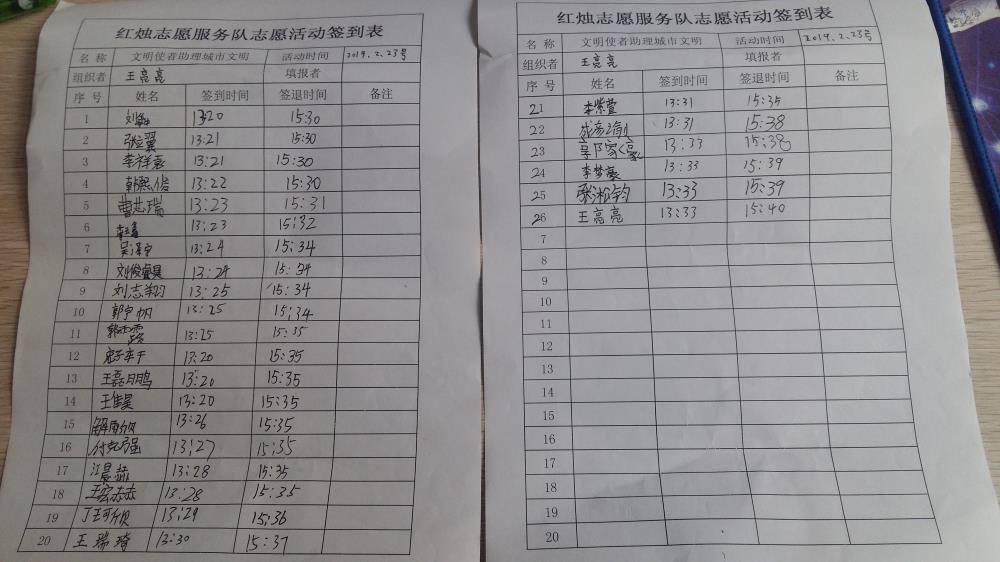 红烛志愿服务队志愿活动签到表
名 称 文明使者助理城市文明 活动时间 2019.2.23号
组织者 王亮亮 填报者
序 号 姓名 签到时间 签退时间 备注
1 刘 13:20 15:30
2 张立翼 13:21 15:30
3 李祥豪 13:21 15:30
4 韩熙俗 13:22 15:30
5 曹志瑞 13:23 15:31
6 13:23 15:32
7 吴泽宇 13:24 15:34
8 刘俊睿昊 13:24 15:34
9 刘志翔 13:25 15:34
10 郭宇帆 13:25 15:34
11 郭雨露 13:25 15:35
12 13:20 15:35
13 王磊月鸣 13:20 15:35
14 王隹昊 13:20 15:35
15 13:26 15:35
16 付克强 13:27 15:35
17 江晨赫 13:28 15:35
18 王宏赫 13:28 15:35
19 丁王可欣 13:29 15:36
20 王瑞琦 13:30 15:37
红烛志愿服务队志愿活动签到表
名 称 文明使者助理城市文明 活动时间 2019.2.23号
组织者 王亮亮 填报者
序 号 姓名 签到时间 签退时间 备注
21 李紫萱 13:31 15:35
22 成彦瑜 13:31 15:38
23 13:33 15:38
24 李梦豪 13:33 15:39
25 张淞钧 13:33 15:39
26 王亮亮 13:33 15:40
7
8
9
10
11
12
13
14
15
16
17
18
19
20